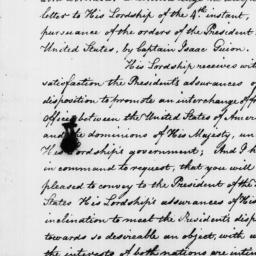 letter to His Lordship of the 4th instant,
pursuance of the orders of the President
United States, by Captain Isaac Guion.
His Lordship receives with
satisfaction the President's assurances of
disposition to promote an interchange of
offices between the United States of Amer
and the dominions of His Majesty, un
His Lordship's government; And I h
in command to request, that you will
pleased to convey to the President of the
States His Lordship's assurances of His
inclination to meet the President's disp
towards so desireable an object, with
the interests of both nations are inti